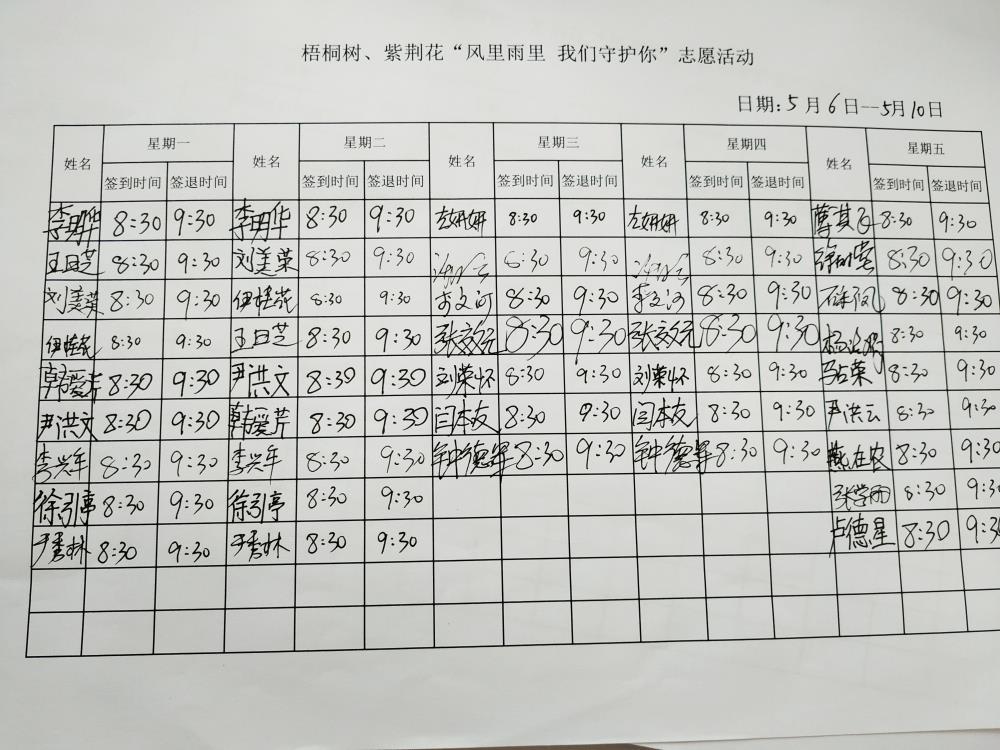 梧桐树、紫荆花“风里雨里 我们守护你”志愿活动
日期:5月6日--5月10日
姓名 星期一 姓名 星期二 姓名 星期三 姓名 星期四 姓名 星期五
签到时间 签退时间 签到时间 签退时间 签到时间 签退时间 签到时间 签退时间 签到时间 签退时间
李明华 8:30 9:30 李明华 8:30 9:30 左妍妍 8:30 9:30 左妍妍 8:30 9:30 8:30 9:30
王日芝 8:30 9:30 刘美荣 8:30 9:30 8:30 9:30 8:30 9:30 8:30 9:30
刘美荣 8:30 9:30 伊桂花 8:30 9:30 李文河 8:30 9:30 李文河 8:30 9:30 8:30 9:30
伊桂花 8:30 9:30 王日芝 8:30 9:30 张效纪 8:30 9:30 张效纪 8:30 9:30 8:30 9:30
韩爱芹 8:30 9:30 尹洪文 8:30 9:30 刘荣怀 8:30 9:30 刘荣怀 8:30 9:30 马占荣 8:30 9:30
尹洪文 8:30 9:30 韩爱芹 8:30 9:30 闫本友 8:30 9:30 闫本友 8:30 9:30 尹洪云 8:30 9:30
李兴年 8:30 9:30 李兴年 8:30 9:30 钟德军 8:30 9:30 钟德军 8:30 9:30 燕在农 8:30 9:30
徐引亭 8:30 9:30 徐引亭 8:30 9:30 张学雨 8:30 9:30
于秀林 8:30 9:30 于秀林 8:30 9:30 卢德星 8:30 9:30